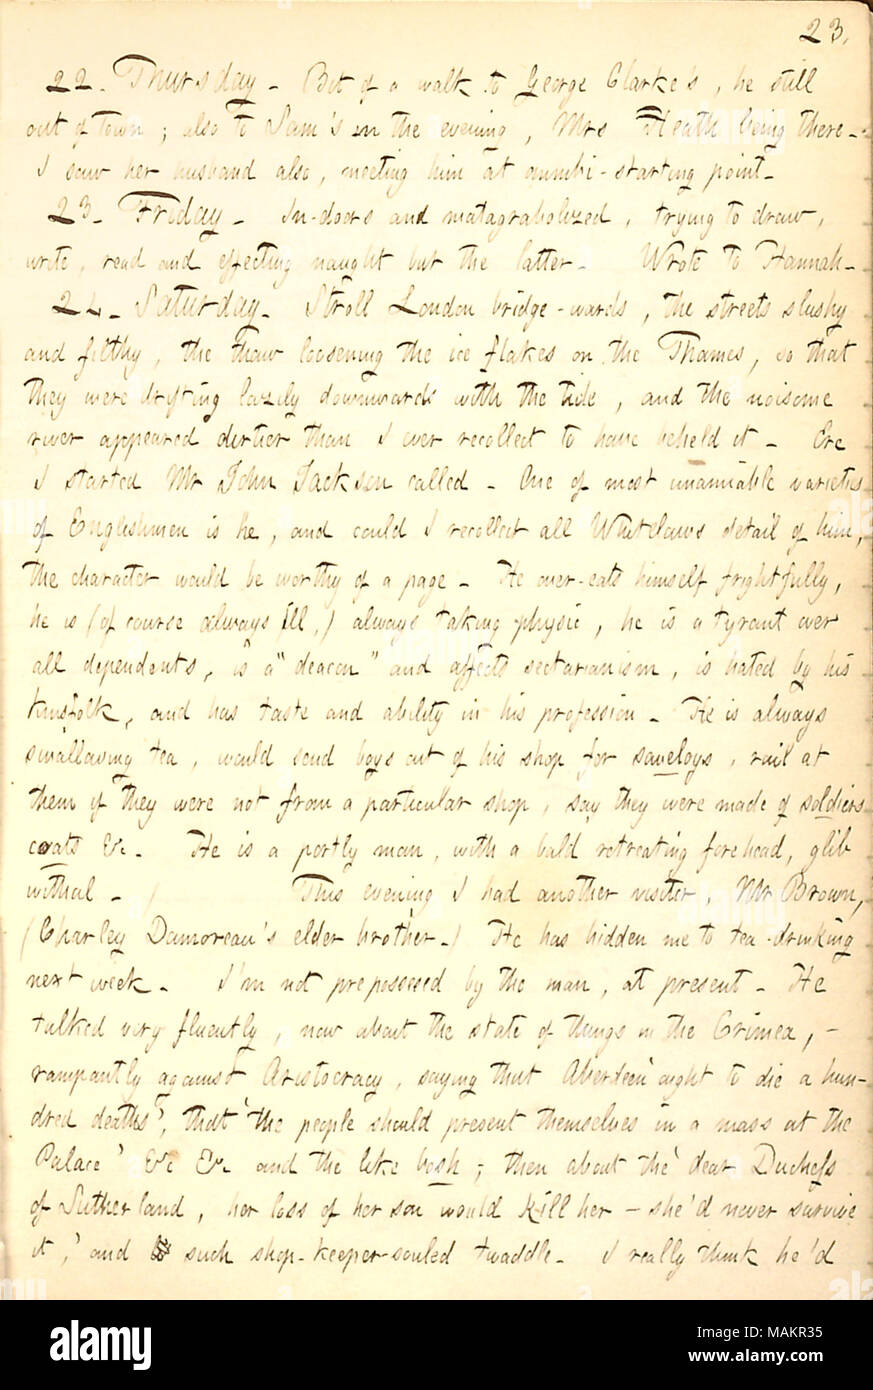 23.
22. Thursday. Bit of a walk to George Clarke's, he still
out of town; also to Sam's in the evening, Mrs Heath being there.
I saw her husband also, meeting him at omnibi-starting point.
23. Friday. In-doors and matagrabolized, trying to draw,
write, read and effecting naught but the latter. Wrote to Hannah.
24. Saturday. Stroll London bridge-wards, the streets slushy
and filthy, the thaw loosening the ice flakes on the Thames, so that
they were drifting lazily downwards with the tide, and the noisome
river appeared dirtier than I ever recollect to have beheld it. Ere
I started Mr John Jackson called. One of most unamiable varieties
of Englishmen is he, and could I recollect all Whitelaws detail of him,
the character would be worthy of a page. He over-eats himself frightfully,
he is (of course always ill,) always taking physic, he is a tyrant over
all dependents, is a "deacon" and affects sectarianism, is hated by his
kinsfolk, and has taste and ability in his profession. He is always
swallowing tea, would send boys out of his shop for saveloys, rail at
them if they were not from a particular shop, say they were made of soldiers
coats &c. He is a portly man, with a bald retreating forehead, glib
withal. ) This evening I had another visiter, Mr Brown,
(Charley Damoreau's elder brother.) He has bidden me to tea-drinking
next week. I'm not prepossessed by the man, at present. He
talked very fluently, now about the state of things in the Crimea, -
rampantly against Aristocracy, saying that Aberdeen 'ought to die a hun-
dred deaths', that 'the people should present themselves in a mass at the
Palace' &c &c and the like bosh; then about the 'dear Duchess
of Sutherland, her loss of her son would kill her - she'd never survive
it,' and such shop-keeper-souled twaddle. I really think he'd
alamy
Image ID: MAKR35
www.alamy.com